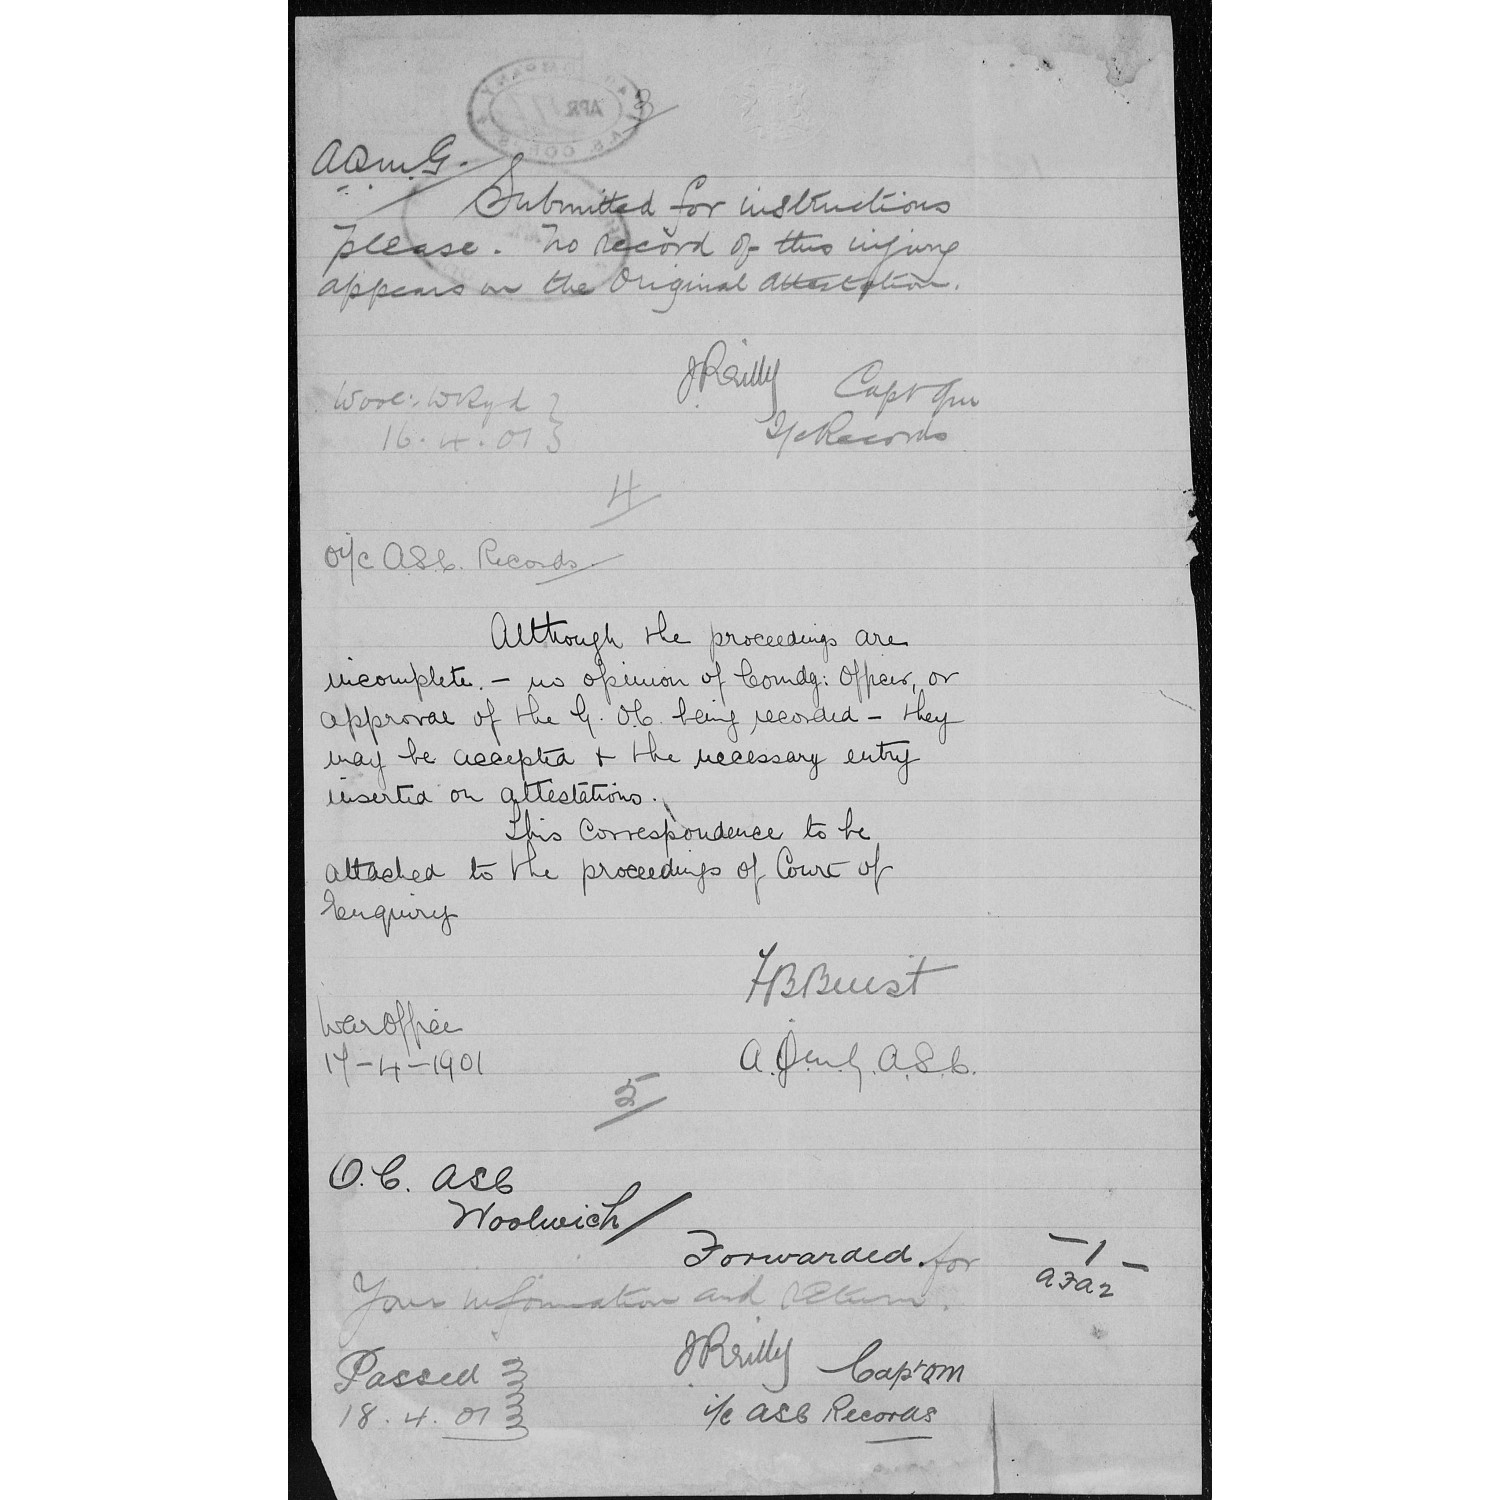 3
A.Q.M.G.
Submitted for instructions
please. No record of this injury
appears on the Original Attestation.
JReilly Capt Qm
I/c Records
16.4.01
4
O i/c A.S.C. Records
Although the proceedings are
incomplete. – no opinion of Comdg: Officer, or
approval of the G.O.C. being recorded – they
may be accepted & the necessary entry
inserted on attestations.
This correspondence to be
attached to the proceedings of Court of
Enquiry
FBBuist
War Office
17-4-1901
A.S.C.
5
O.C. ASC
Woolwich
Forwarded for
Your information and return.
– 1 –
AFA2
JReilly Capt QM
i/c ASC Records
Passed
18.4.01